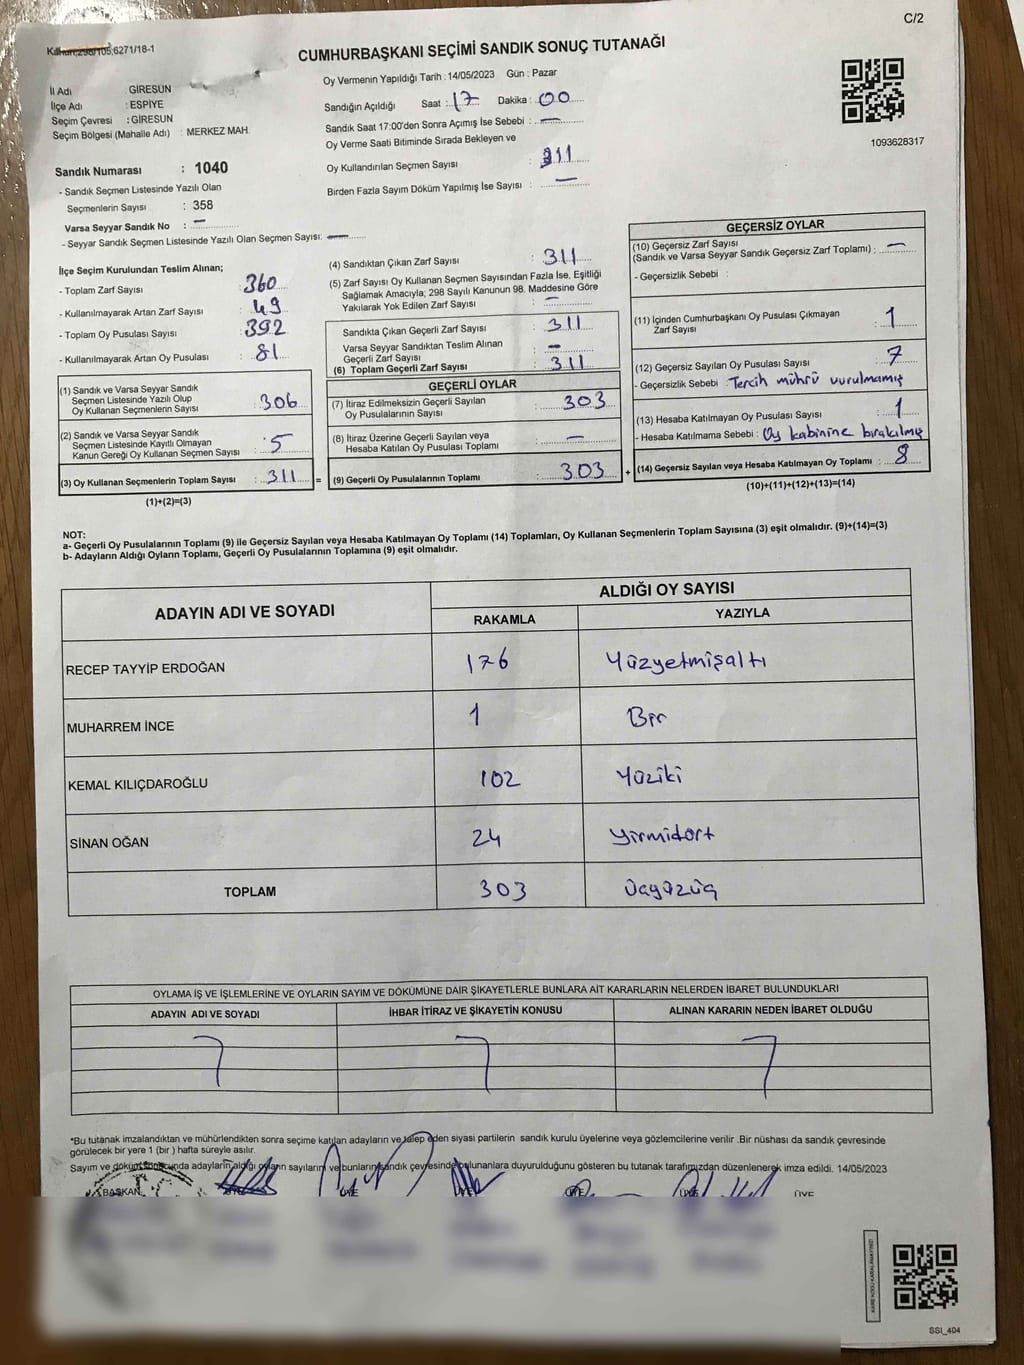 C/2
Kanun:298/105,6271/18-1
CUMHURBAŞKANI SEÇİMİ SANDIK SONUÇ TUTANAĞI
İl Adı GİRESUN
İlçe Adı : ESPİYE
Seçim Çevresi : GİRESUN
Seçim Bölgesi (Mahalle Adı) : MERKEZ MAH.
Oy Vermenin Yapıldığı Tarih : 14/05/2023 Gün : Pazar
Sandığın Açıldığı Saat : 17 Dakika : 00
Sandık Saat 17:00'den Sonra Açımış İse Sebebi : —
Oy Verme Saati Bitiminde Sırada Bekleyen ve
Oy Kullandırılan Seçmen Sayısı : 311
Birden Fazla Sayım Döküm Yapılmış İse Sayısı : —
1093628317
Sandık Numarası : 1040
- Sandık Seçmen Listesinde Yazılı Olan
Seçmenlerin Sayısı : 358
Varsa Seyyar Sandık No : —
- Seyyar Sandık Seçmen Listesinde Yazılı Olan Seçmen Sayısı: —
İlçe Seçim Kurulundan Teslim Alınan;
- Toplam Zarf Sayısı : 360
- Kullanılmayarak Artan Zarf Sayısı : 49
- Toplam Oy Pusulası Sayısı : 392
- Kullanılmayarak Artan Oy Pusulası : 81
(1) Sandık ve Varsa Seyyar Sandık
Seçmen Listesinde Yazılı Olup
Oy Kullanan Seçmenlerin Sayısı : 306
(2) Sandık ve Varsa Seyyar Sandık
Seçmen Listesinde Kayıtlı Olmayan
Kanun Gereği Oy Kullanan Seçmen Sayısı : 5
(3) Oy Kullanan Seçmenlerin Toplam Sayısı : 311 =
(1)+(2)=(3)
(4) Sandıktan Çıkan Zarf Sayısı : 311
(5) Zarf Sayısı Oy Kullanan Seçmen Sayısından Fazla İse, Eşitliği
Sağlamak Amacıyla; 298 Sayılı Kanunun 98. Maddesine Göre
Yakılarak Yok Edilen Zarf Sayısı : —
Sandıkta Çıkan Geçerli Zarf Sayısı : 311
Varsa Seyyar Sandıktan Teslim Alınan
Geçerli Zarf Sayısı : —
(6) Toplam Geçerli Zarf Sayısı : 311
GEÇERLİ OYLAR
(7) İtiraz Edilmeksizin Geçerli Sayılan
Oy Pusulalarının Sayısı : 303
(8) İtiraz Üzerine Geçerli Sayılan veya
Hesaba Katılan Oy Pusulası Toplamı : —
(9) Geçerli Oy Pusulalarının Toplamı : 303 +
GEÇERSİZ OYLAR
(10) Geçersiz Zarf Sayısı
(Sandık ve Varsa Seyyar Sandık Geçersiz Zarf Toplamı) : —
- Geçersizlik Sebebi :
(11) İçinden Cumhurbaşkanı Oy Pusulası Çıkmayan
Zarf Sayısı : 1
(12) Geçersiz Sayılan Oy Pusulası Sayısı : 7
- Geçersizlik Sebebi : Tercih mührü vurulmamış
(13) Hesaba Katılmayan Oy Pusulası Sayısı : 1
- Hesaba Katılmama Sebebi : Oy kabinine bırakılmış
(14) Geçersiz Sayılan veya Hesaba Katılmayan Oy Toplamı : 8
(10)+(11)+(12)+(13)=(14)
NOT:
a- Geçerli Oy Pusulalarının Toplamı (9) ile Geçersiz Sayılan veya Hesaba Katılmayan Oy Toplamı (14) Toplamları, Oy Kullanan Seçmenlerin Toplam Sayısına (3) eşit olmalıdır. (9)+(14)=(3)
b- Adayların Aldığı Oyların Toplamı, Geçerli Oy Pusulalarının Toplamına (9) eşit olmalıdır.
ADAYIN ADI VE SOYADI
ALDIĞI OY SAYISI
RAKAMLA YAZIYLA
RECEP TAYYİP ERDOĞAN 176 Yüzyetmişaltı
MUHARREM İNCE 1 Bir
KEMAL KILIÇDAROĞLU 102 Yüziki
SİNAN OĞAN 24 Yirmidört
TOPLAM 303 üçyüzüç
OYLAMA İŞ VE İŞLEMLERİNE VE OYLARIN SAYIM VE DÖKÜMÜNE DAİR ŞİKAYETLERLE BUNLARA AİT KARARLARIN NELERDEN İBARET BULUNDUKLARI
ADAYIN ADI VE SOYADI İHBAR İTİRAZ VE ŞİKAYETİN KONUSU ALINAN KARARIN NEDEN İBARET OLDUĞU
*Bu tutanak imzalandıktan ve mühürlendikten sonra seçime katılan adayların ve talep eden siyasi partilerin sandık kurulu üyelerine veya gözlemcilerine verilir .Bir nüshası da sandık çevresinde
görülecek bir yere 1 (bir ) hafta süreyle asılır.
Sayım ve döküm sonucunda adayların aldığı oyların sayıları ve bunların sandık çevresinde bulunanlara duyurulduğunu gösteren bu tutanak tarafımızdan düzenlenerek imza edildi. 14/05/2023
BAŞKAN ÜYE ÜYE ÜYE ÜYE ÜYE ÜYE
SSI_404